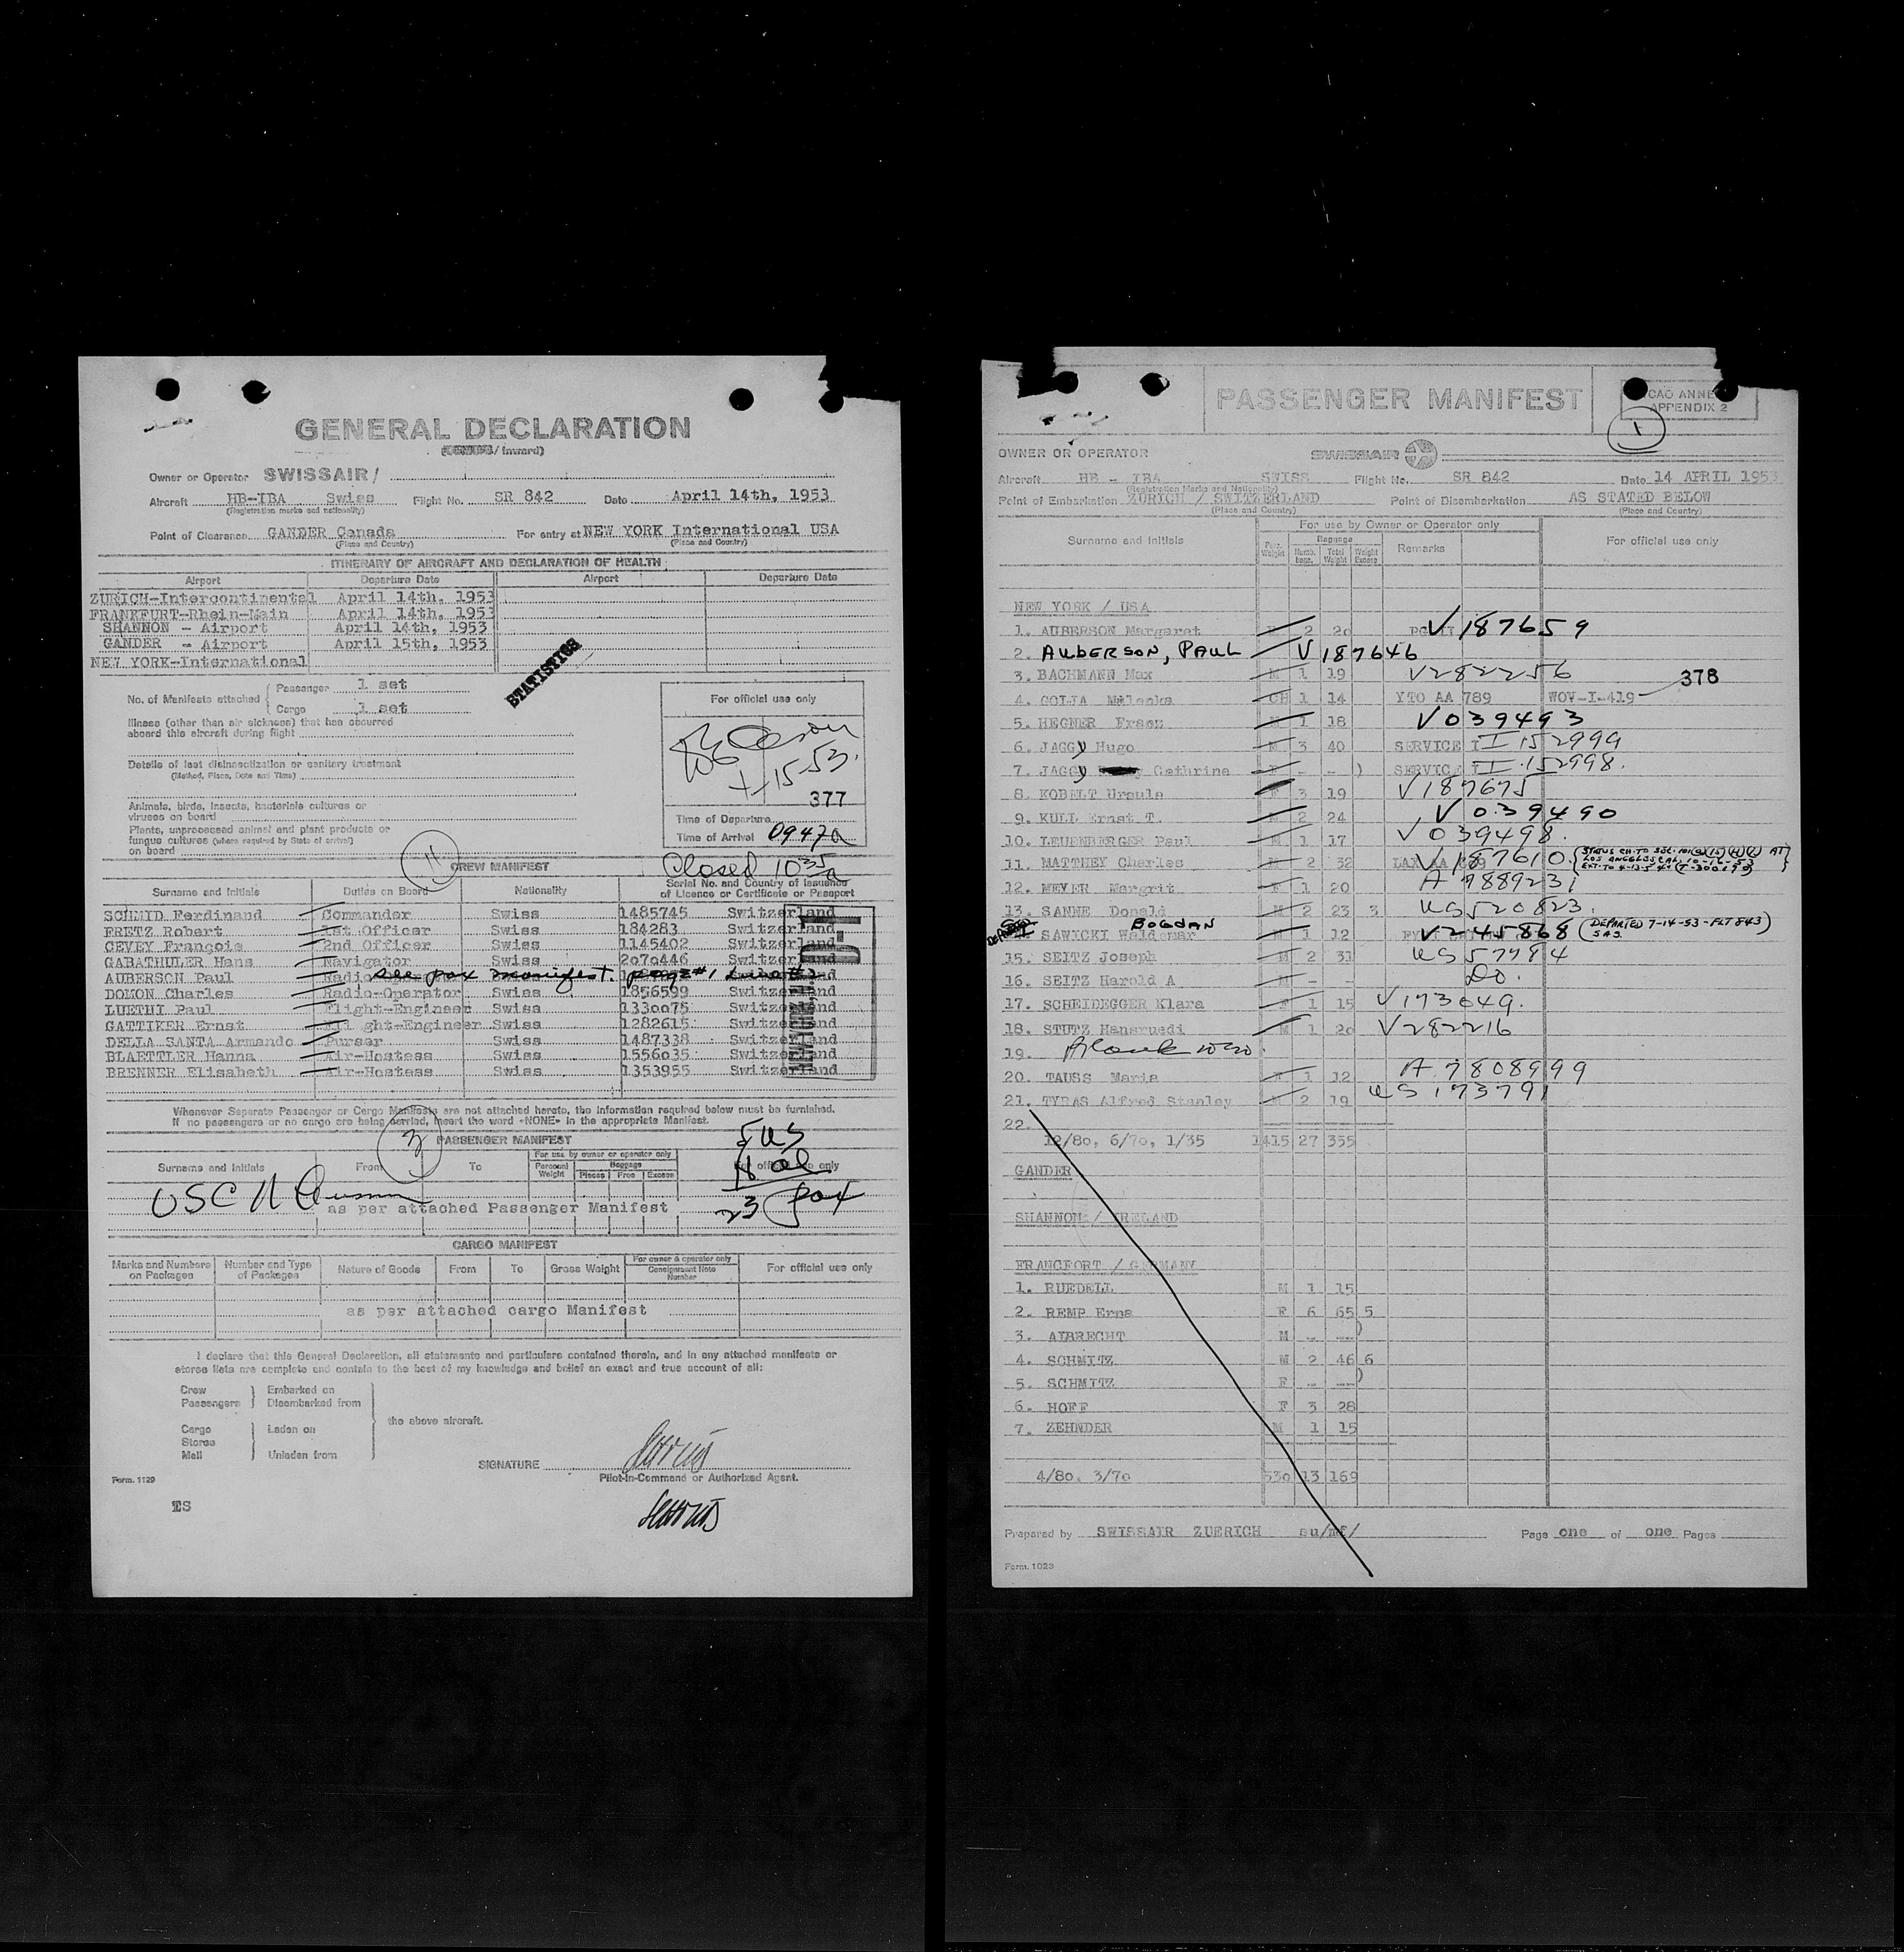 GENERAL DECLARATION
/ Inward)
Owner or Operator SWISSAIR/
Aircraft HB-IBA Swiss Flight No. SR 842 Date April 14th, 1953
(Registration marks and nationality)
Point of Clearance GANDER Canada For entry at NEW YORK International USA
(Place and Country) (Place and Country)
ITINERARY OF AIRCRAFT AND DECLARATION OF HEALTH
Airport Departure Date Airport Departure Date
ZURICH-Intercontinental April 14th, 1953
FRANKFURT-Rhein-Main April 14th, 1953
SHANNON - Airport April 14th, 1953
GANDER - Airport April 15th, 1953
NEW YORK-International
STATISTICS
No. of Manifests attached { Passenger 1 set
Cargo 1 set
For official use only
Illness (other than air sickness) that has occurred
aboard this aircraft during flight
Details of last disinsectization or sanitary treatment
(Method, Place, Date and Time)
4-15-53.
377
Animals, birds, insects, bacteriale cultures or
viruses on board
Plants, unprocessed animal and plant products or
fungue cultures (where required by State of arrival)
on board
Time of Departure
Time of Arrival 0947a
Closed 1035a
11
CREW MANIFEST
Surname and Initials Duties on Board Nationality Serial No. and Country of Issuance
of Licence or Certificate or Passport
SCHMID Ferdinand Commander Swiss 1485745 Switzerland
FRETZ Robert 1st Officer Swiss 184283 Switzerland
CEVEY François 2nd Officer Swiss 1145402 Switzerland
GABATHULER Hans Navigator Swiss 2070446 Switzerland
AUBERSON Paul see pax manifest. page #1 Line #2
DOMON Charles Radio-Operator Swiss 1856599 Switzerland
LUETHI Paul Flight-Engineer Swiss 1330075 Switzerland
GATTIKER Ernst Flight-Engineer Swiss 1282615 Switzerland
DELLA SANTA Armando Purser Swiss 1487338 Switzerland
BLAETTLER Hanna Air-Hostess Swiss 1556035 Switzerland
BRENNER Elisabeth Air-Hostess Swiss 1353955 Switzerland
Whenever Separate Passenger or Cargo Manifests are not attached hereto, the information required below must be furnished.
If no passengers or no cargo are being carried, insert the word «NONE» in the appropriate Manifest.
PASSENGER MANIFEST
Surname and Initials From To For use by owner or operator only For official use only
Personal Weight Baggage
Pieces Free Excess
5 US
18 al
23 pax
USC 11
as per attached Passenger Manifest
CARGO MANIFEST
Marks and Numbers on Packages Number and Type of Packages Nature of Goods From To Gross Weight For owner & operator only Consignment Note Number For official use only
as per attached cargo Manifest
I declare that this General Declaration, all statements and particulars contained therein, and in any attached manifests or
stores lists are complete and contain to the best of my knowledge and belief an exact and true account of all:
Crew } Embarked on
Passengers } Disembarked from
the above aircraft.
Cargo } Laden on
Stores
Mail } Unladen from
SIGNATURE
Pilot-in-Command or Authorized Agent.
Form. 1129
TS
PASSENGER MANIFEST
APPENDIX 2
1
OWNER OR OPERATOR SWISSAIR
Aircraft HB - IBA SWISS Flight No. SR 842 Date 14 APRIL 1953
(Registration Marks and Nationality)
Point of Embarkation ZURICH / SWITZERLAND Point of Disembarkation AS STATED BELOW
(Place and Country) (Place and Country)
For use by Owner or Operator only
Surname and Initials Pers. Weight Baggage Remarks For official use only
Numb. bags. Total Weight Weight Excess
NEW YORK / USA
1. AUBERSON Margaret 2 20 V 187659
2. AUBERSON, PAUL V 187646
3. BACHMANN Max M 1 19 V 282256
4. GOLIA CH 1 14 YTO AA 789 WOV-I-419 378
5. HEGNER Franz M 1 18 V 039493
6. JAGGY Hugo M 3 40 SERVICE I-152999
7. JAGGY Cathrine F - - ) SERVICE I-152998.
8. KOBELT Ursula F 3 19 V 187675
9. KULL Ernst T. M 2 24 V 039490
10. LEUENBERGER Paul M 1 17 V 039498.
11. MATTHEY Charles M 2 32 LAX AA V 187610. (STATUS CH. TO SEC. 101 AT
LOS ANGELES CAL, 10-16-53
EXT. TO 4-13-54
12. MEYER Margrit F 1 20 A 7889231
13. SANNE Donald M 2 23 3 US 520823.
BOGDAN
SAWICKI Waldemar M 1 12 V 245868 (DEPARTED 7-14-53 - FLT 543)
SAS.
15. SEITZ Joseph M 2 31 US 57984
16. SEITZ Harold A M - - DO.
17. SCHEIDEGGER Klara F 1 15 V 173049.
18. STUTZ Hansruedi M 1 20 V 282216
19. Blank
20. TAUSS Maria F 1 12 A 7808999
21. TYRAS Alfred Stanley M 2 19 US 173791
22.
12/80, 6/70, 1/35 1415 27 355
GANDER
SHANNON / IRELAND
FRANCFORT / GERMANY
1. RUEDELL M 1 15
2. REMP Erna F 6 65 5
3. ALBRECHT M - -- )
4. SCHMITZ M 2 46 6
5. SCHMITZ F - -- )
6. HOFF F 3 28
7. ZEHNDER M 1 15
4/80, 3/70 530 13 169
Prepared by SWISSAIR ZUERICH su/mf/ Page one of one Pages
Form. 1023